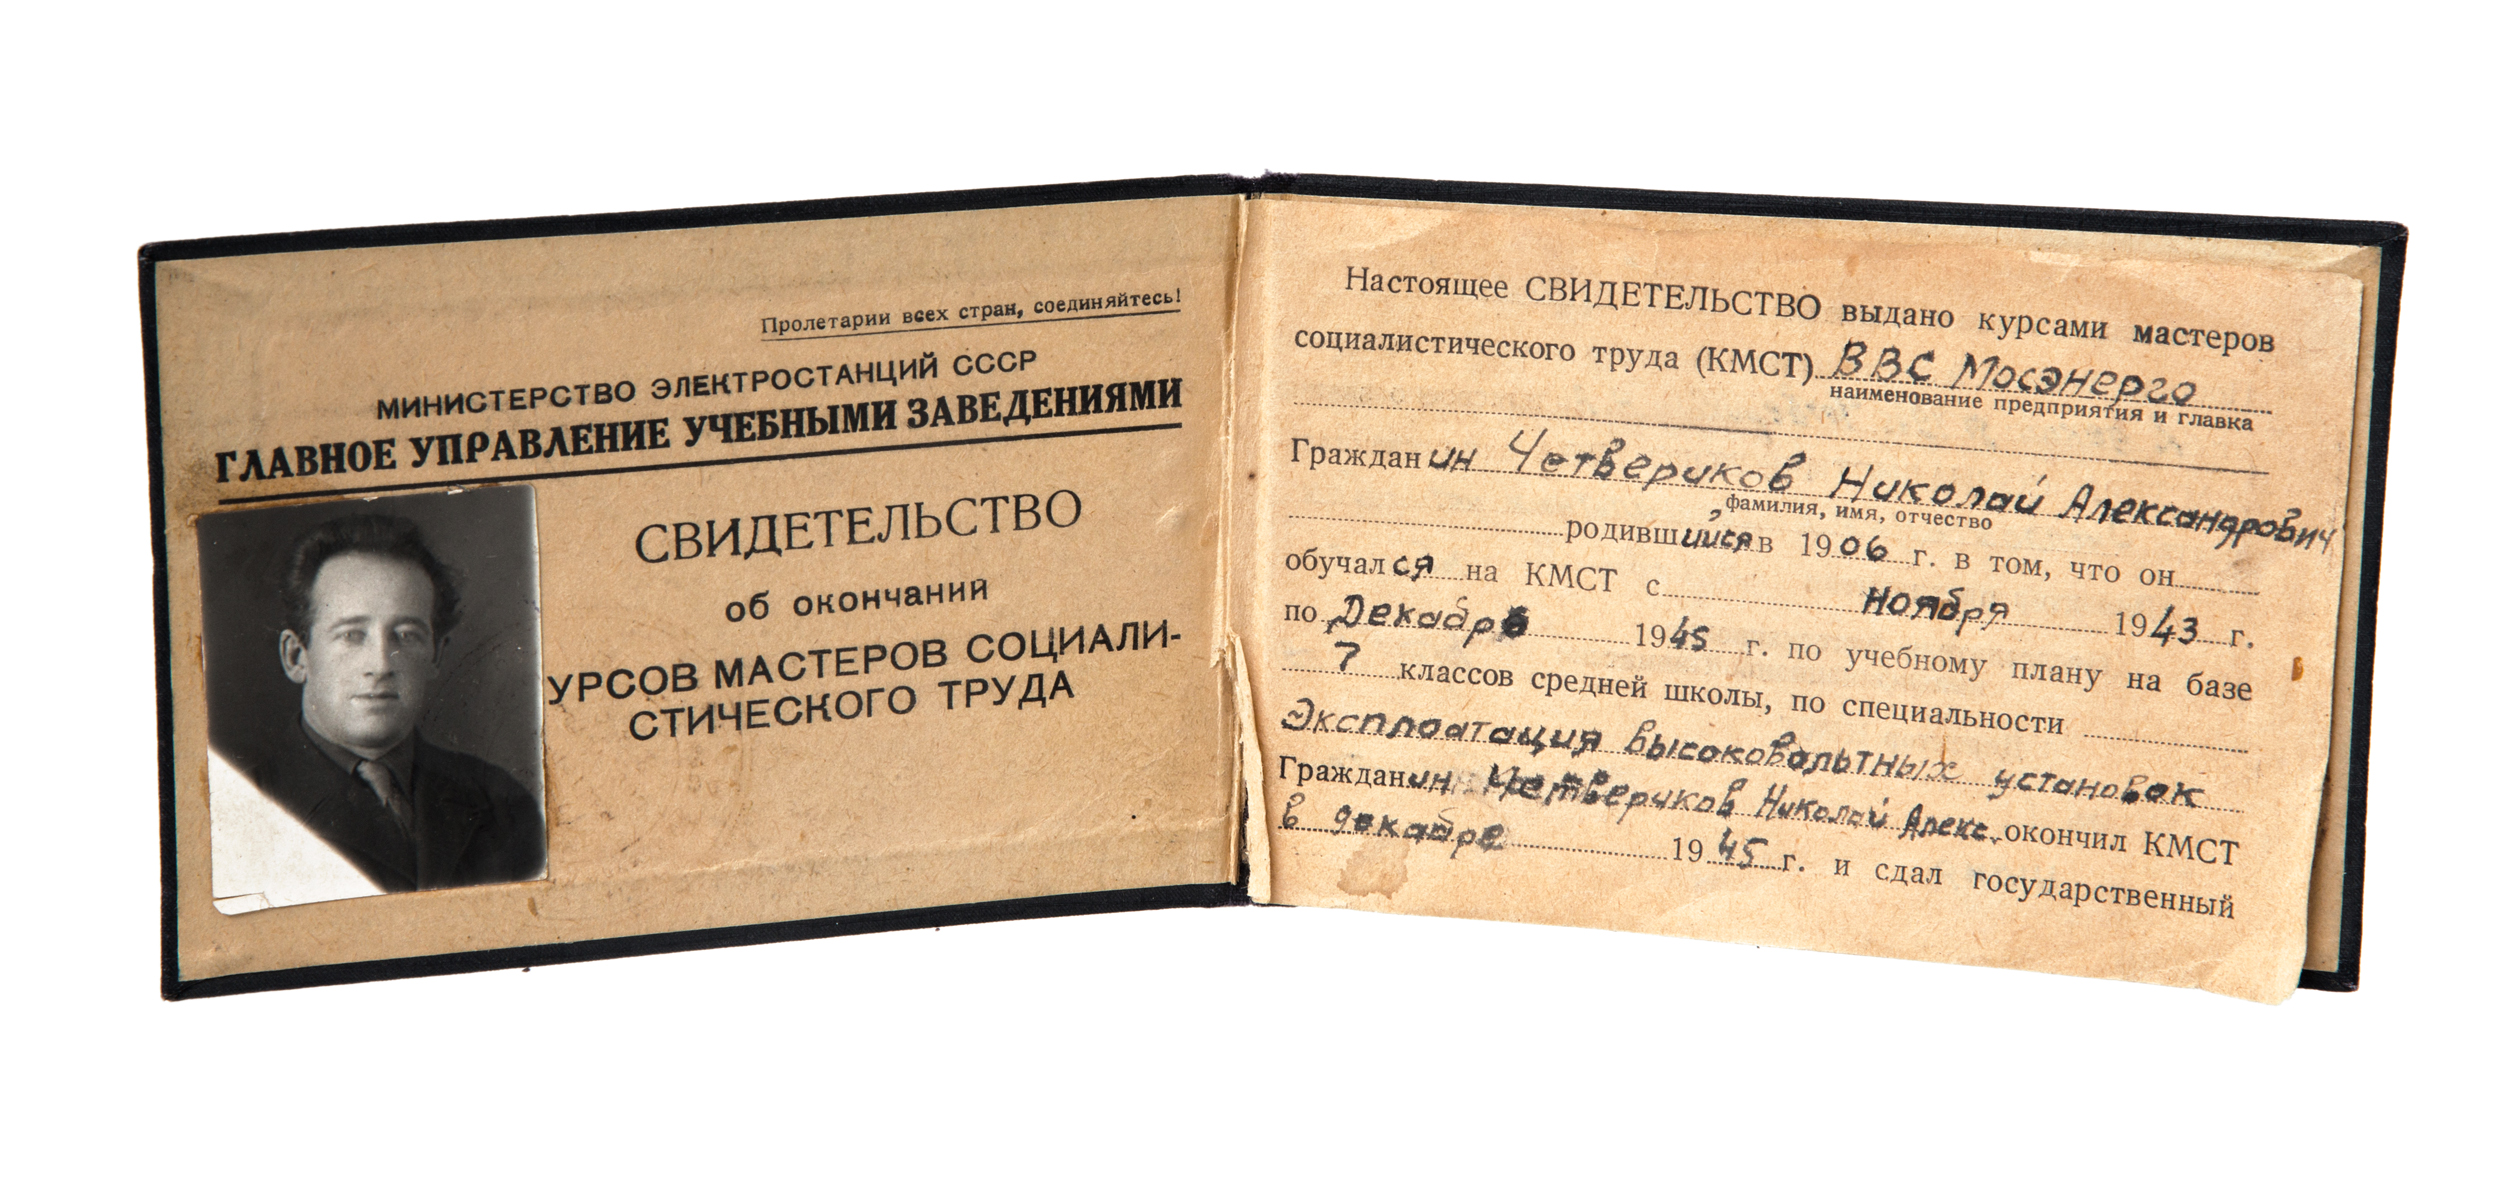 Пролетарии всех стран, соединяйтесь!
МИНИСТЕРСТВО ЭЛЕКТРОСТАНЦИЙ СССР
ГЛАВНОЕ УПРАВЛЕНИЕ УЧЕБНЫМИ ЗАВЕДЕНИЯМИ
СВИДЕТЕЛЬСТВО
об окончаний
УРСОВ МАСТЕРОВ СОЦИАЛИ-
СТИЧЕСКОГО ТРУДА
Настоящее СВИДЕТЕЛЬСТВО выдано курсами мастеров
социалистического труда (КМСТ) ВВС Мосэнерго
наименование предприятия и главка
Гражданин Четвериков Николай Александрович
фамилия, имя, отчество
родившийся в 1906 г. в том, что он
обучался на КМСТ с ноября 1943 г.
по Декабрь 1945 г. по учебному плану на базе
7 классов средней школы, по специальности
Эксплоатация высоковольтных установок
Гражданин Четвериков Николай Алекс. окончил КМСТ
в декабре 1945 г. и сдал государственный